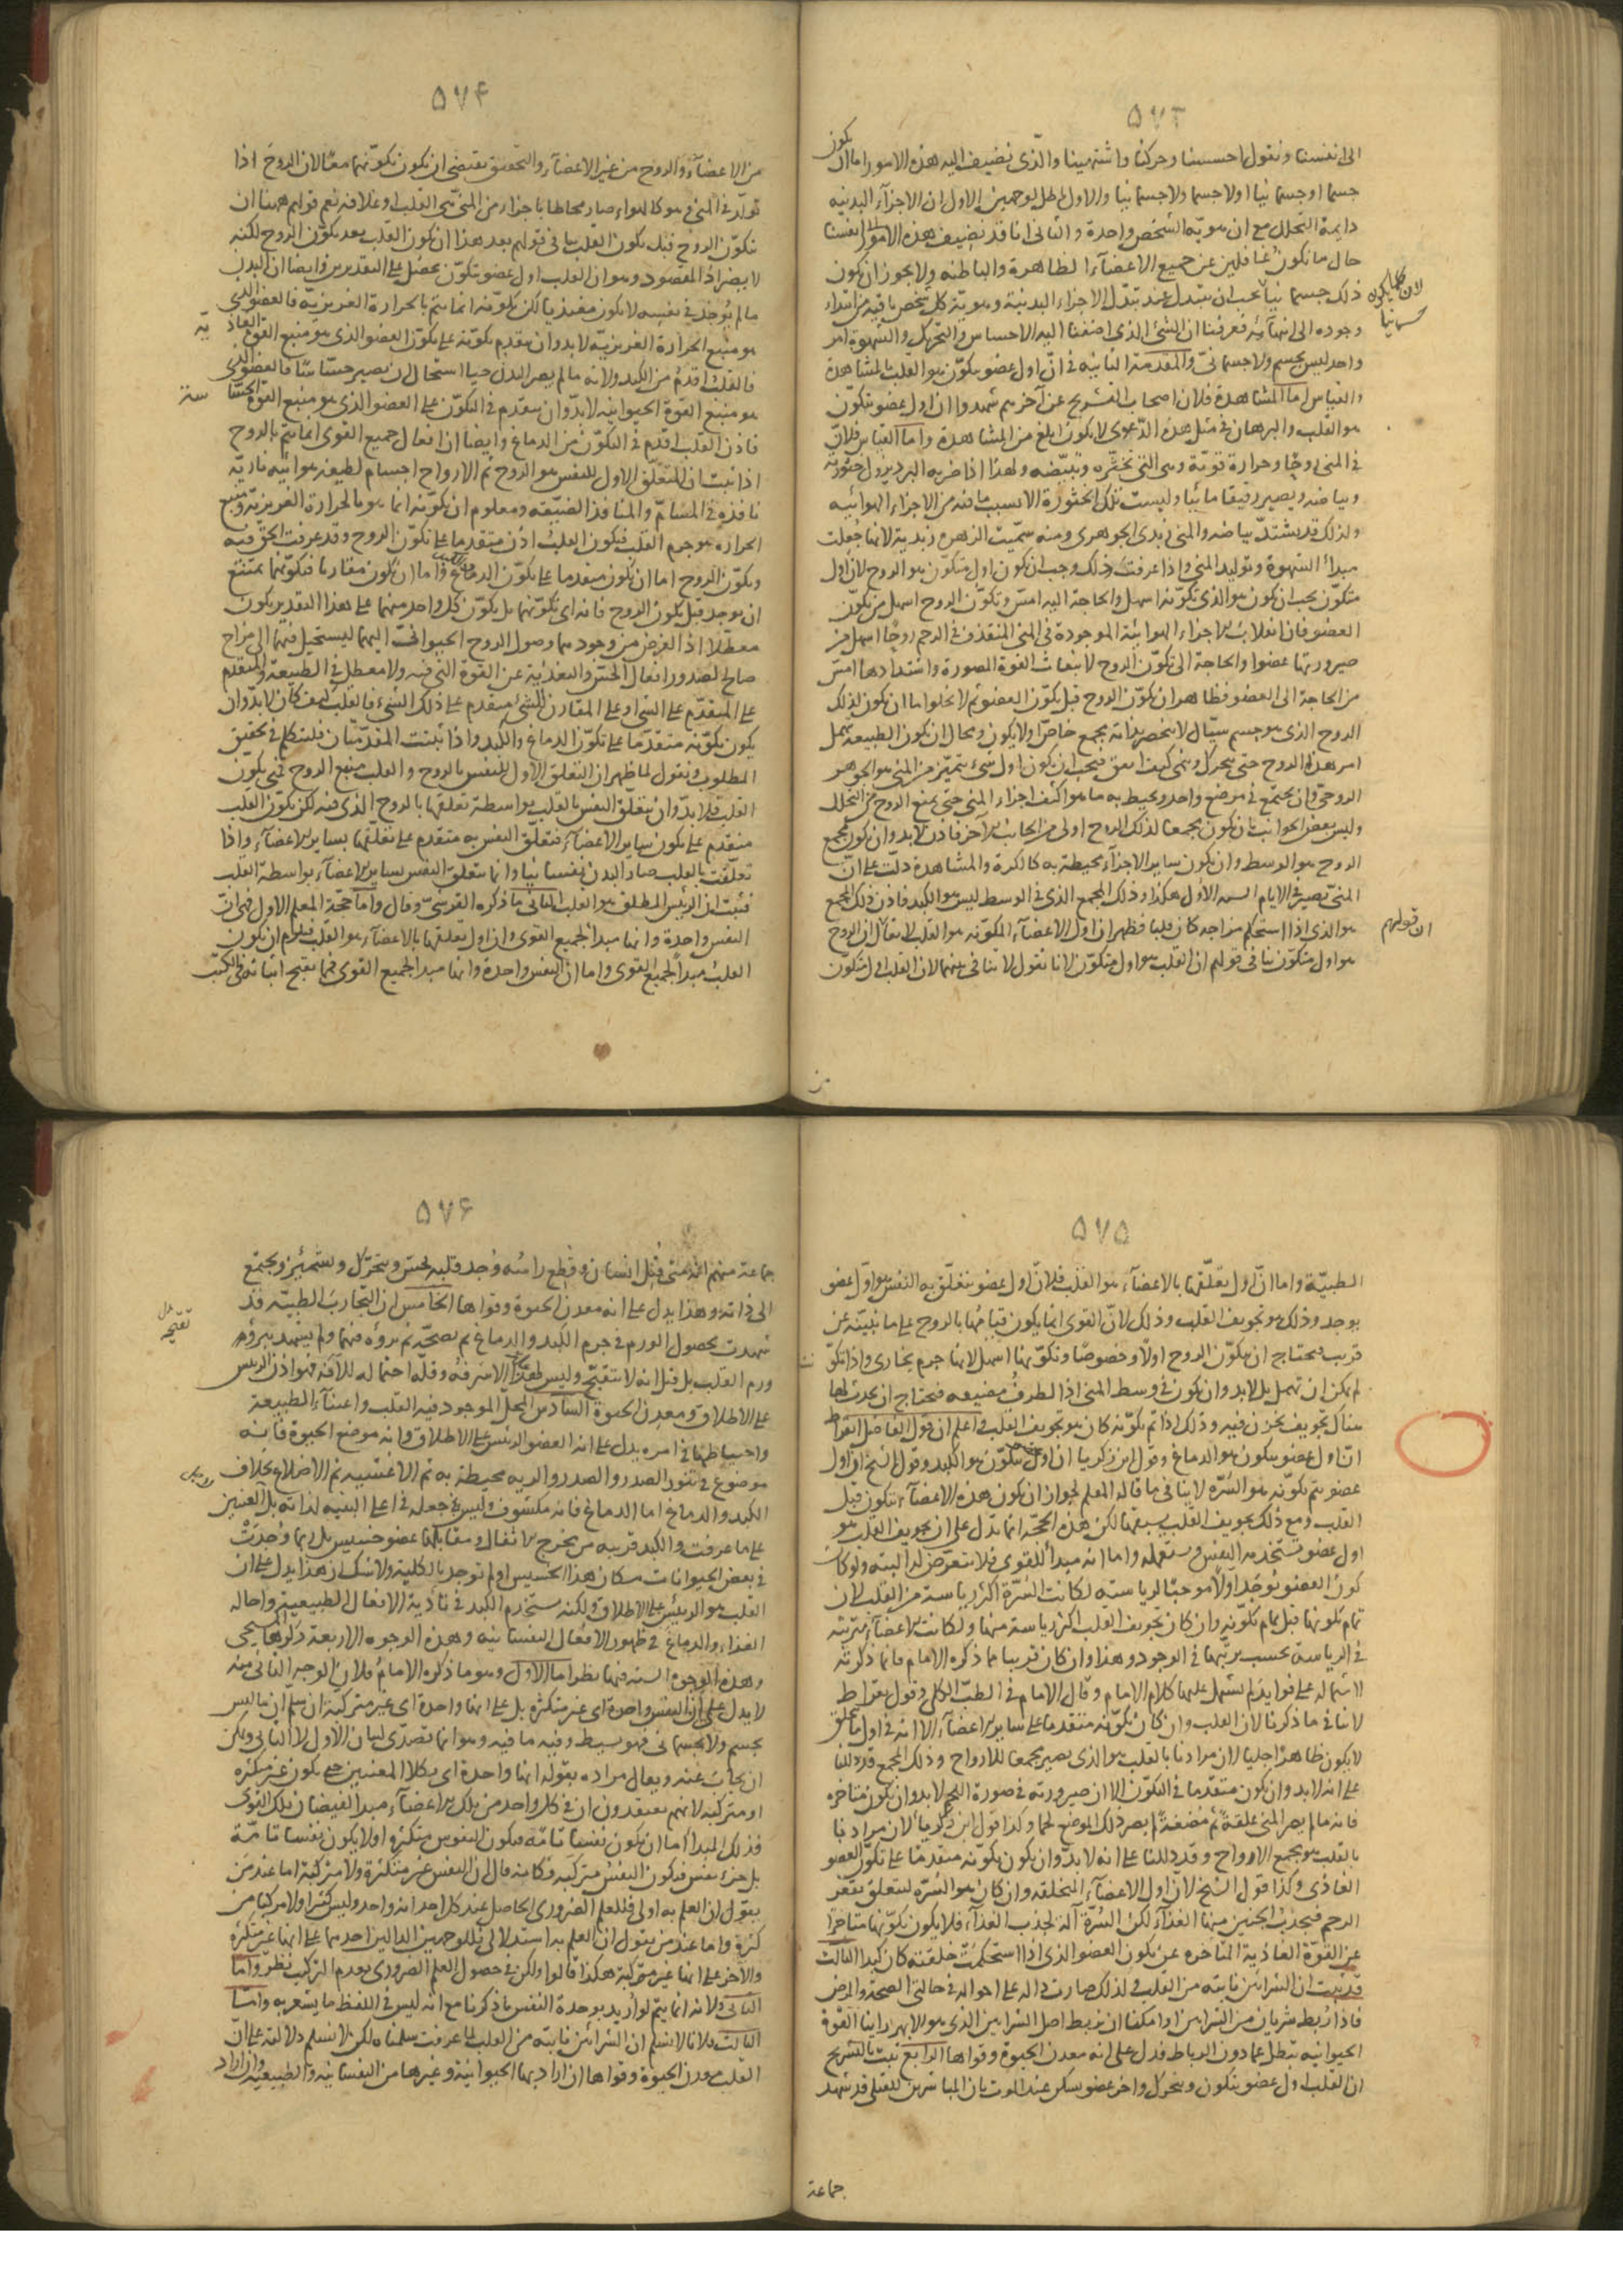 ۵۷۳
الى انفسنا ونقول احسسنا وحركنا واشتهينا والذى نضيف اليه هذه الامور اما ان يكون
جسما او جسمانيا او لاجسما ولاجسمانيا والاول باطل لوجهين الاول ان الاجزآء البدنيه
دايمة التحلل مع ان هويّة الشخص واحدة والثانى انا قد نضيف هذه الامور الى انفسنا
حال ما نكون غافلين عن جميع الاعضآء الظاهرة والباطنه ولا يجوز ان يكون
ذلك جسمانيا يجب ان يتبدل عند تبدّل الاجزاء البدنية وهويّة كل شخص باقيه من ابتداء
لان كلما يكون جسمانيا
وجوده الى انتهآئه فعرفنا ان الشئ الذى اضفنا اليه الاحساس والتحريك والشهوة امر
واحد ليس بجسم ولا جسمانىّ والمقدمة الثانيه فى انّ اول عضو يتكوّن هو القلب المشاهدة
والقياس اما المشاهدة فلان اصحاب التشريح عن آخرهم شهدوا ان اول عضو يتكون
هو القلب والبرهان فى مثل هذه الدّعوى لا يكون ابلغ من المشاهدة واما القياس فلانّ
فى المنى روحًا وحرارة قويّة وهى التى تخثّره وتبيّضه ولهذا اذا ضربه البرد يزول خثورته
وبياضه ويصير رقيقا مائيا وليست تلك الخثورة الا بسبب ما فيه من الاجزاء الهوائيه
ولذلك قد يشتدّ بياضه والمنى زبدى الجوهرى ومنه سمّيت الزهره زبدية لانها جعلت
مبدأ الشهوة وتوليد المنى واذا عرفت ذلك وجب ان يكون اول متكوّن هو الروح لان اول
متكوّن يجب ان يكون هو الذى تكوّنه اسهل والحاجة اليه امسّ وتكوّن الروح اسهل من تكوّن
العضو فان انقلاب الاجزاء الهوائية الموجودة فى المنى المنقذف فى الرحم روحًا اسهل من
صيرورتها عضوا والحاجة الى تكوّن الروح لانبعاث القوة المصورة واشتدادها امسّ
من الحاجة الى العضو فظاهر ان تكوّن الروح قبل تكوّن العضو ثم لا يخلوا اما ان يكون لذلك
الروح الذى هو جسم سيّال لا ينحصر بذاته مجمع خاصّ او لا يكون ومحال ان يكون الطبيعة تهمل
امر هذه الروح حتى يتحرك وتنمى كيف اتفق فيجب ان يكون اول شئ يتميّز من المنى هو الجوهر
الروحىّ وان يجتمع فى موضع واحد ويحيط به ما هو اكثف اجزاء المنى حتى يمنع الروح من التحلل
وليس بعض الجوانب بان يكون مجمعا لذلك الروح اولى من الجانب الآخر فاذن لابد وان يكون مجمع
الروح هو الوسط وان يكون ساير الاجزآء محيطة به كالكرة والمشاهدة دلّت على انّ
المنىّ يصير فى الايام الستة الاول هكذا وذلك المجمع الذى فى الوسط ليس هو الكبد فاذن ذلك المجمع
هو الذى اذا استحكم مزاجه كان قلبا فظهر ان اول الاعضآء المكوّنه هو القلب لا يقال ان الروح
ان قولهم
هو اول متكوّن ينافى قولهم ان القلب هو اول متكوّن لانا نقول لا ينافى بينهما لان القلب اول متكوّن
من
۵۷۴
من الاعضآء والروح من غير الاعضآء والتحقيق يقتضى ان يكون تكوّنهما معًا لان الروح اذا
تولّد فى المنى وهو كالهواء صار محاطا باجزاء من المنىّ هى القلب او غلافه نعم قولهم ههنا ان
تكوّن الروح قبل تكون القلب ينافى قولهم بعد هذا ان تكون القلب بعد تكوّن الروح لكنه
لا يضر اذ المقصود وهو ان القلب اول عضو يتكوّن يحصل على التقديرين وايضا ان البدن
ما لم يوجد فى نفسه لا يكون مغتذيا لكن تكوّنه انما يتم بالحرارة الغريزيّة فالعضو الذى
هو منبع الحرارة الغريزيّة لابد وان يتقدم تكوّنه على تكوّن العضو الذى هو منبع القوة الغاذية
فالقلب اقدم من الكبد ولانه ما لم يصر البدن حيا استحال ان يصير حسّاسًا فالعضو الذى
هو منبع القوة الحيوانيه لابدّ وان يتقدم فى التكوّن على العضو الذى هو منبع القوة الحسّاسة
فاذن القلب اقدم فى التكوّن من الدماغ وايضا ان افعال جميع القوى انما يتم بالروح
اذا ثبت ان المتعلّق الاول للنفس هو الروح ثم الارواح اجسام لطيفه هوائية ناريّة
نافذة فى المسامّ والمنافذ الضيّقه ومعلوم ان تكوّنه انما هو بالحرارة الغريزيّة ومنبع
الحرارة هو جرم القلب فيكون القلب اذن متقدما على تكوّن الروح وقد عرفت الحق فيه
وتكوّن الروح اما ان يكون متقدما على تكوّن الدماغ والكبد واما ان يكون مقارنا فتكوّنهما يمتنع
ان يوجد قبل تكون الروح فانه اى تكوّنهما بل تكوّن كل واحد منهما على هذا التقدير يكون
معطّلا اذ الغرض من وجودهما وصول الروح الحيوانىّ اليهما ليستحيل فيهما الى مزاج
صالح لصدور افعال الحسّ والتغذية عن القوة التى فيه ولا معطل فى الطبيعة والمتقدم
على المتقدّم على الشئ او على المقارن للشئ متقدم على ذلك الشئ فالقلب كيف كان لابدّ وان
يكون تكوّنه متقدّما على تكوّن الدماغ والكبد واذا ثبتت المقدّمتان فلنتكلم فى تحقيق
المطلوب ونقول لما ظهر ان التعلق الاول للنفس بالروح والقلب منبع الروح فمتى تكوّن
القلب فلابدّ وان يتعلّق النفس بالقلب بواسطة تعلقها بالروح الذى فيه لكن تكوّن القلب
متقدم على تكون ساير الاعضآء فتعلّق النفس به متقدم على تعلّقها بساير الاعضآء واذا
تعلّقت بالقلب صار البدن نفسانيا وانما يتعلق النفس بساير الاعضآء بواسطة القلب
فثبت ان الرئيس المطلق هو القلب الثانى ما ذكره القرشىّ وقال واما حجّة المعلم الاول فهى انّ
النفس واحدة وانها مبدأ لجميع القوى وان اول تعلقها بالاعضآء هو القلب فيلزم ان يكون
القلب مبدأ لجميع القوى واما ان النفس واحدة وانها مبدأ لجميع القوى فمما يقبح اثباته فى الكتب
۵۷۵
الطبيّة واما انّ اول تعلّقها بالاعضآء هو القلب فلانّ اول عضو يتعلّق به النفس هو اوّل عضو
يوجد وذلك هو تجويف القلب وذلك لانّ القوى انما يكون قيامها بالروح على ما نبيّنه عن
قريب فيحتاج ان يتكوّن الروح اولًا وخصوصًا وتكوّنها اسهل لانها جرم بخارى واذا تكوّنت
لم يمكن ان تهمل بل لابد وان يكون فى وسط المنى اذ الطرف مضيعه فيحتاج ان يحدث لها
هناك تجويف يخزن فيه وذلك اذا تم تكوّنه كان هو تجويف القلب واعلم ان قول الفاضل ابقراط
انّ اول عضو يتكون هو الدماغ وقول ابن زكريا ان اول متكوّن هو الكبد وقول الشيخ انّ اول
عضو يتم تكوّنه هو السّرّة لا ينافى ما قاله المعلم لجواز ان يكون هذه الاعضآء يتكون قبل
القلب ومع ذلك تجويف القلب يسبقها لكن هذه الحجّة انما تدل على ان تجويف القلب هو
اول عضو يستخدمه النفس ويستعمله واما انه مبدأ للقوى فلا يتعرّض لذا البتّه ولو كان
كون العضو يوجد اولًا موجبًا لرياسته لكانت السّرّة اكثر رياسة من القلب لان
تمام تكونها قبل تمام تكوّنه وان كان تجويف القلب اكثر رياسة منها ولكانت الاعضآء مترتبة
فى الرياسة بحسب ترتّبها فى الوجود وهذا وان كان قريبا مما ذكره الامام فانما ذكرته
لاشتماله على فوايد لم يشتمل عليها كلام الامام وقال الامام فى الطبّ الكلى وقول بقراط
لا ينافى ما ذكرنا لان القلب وان كان تكوّنه متقدما على ساير الاعضآء الا انه فى اول ما يخلق
لا يكون ظاهرًا جليا لان مرادنا بالقلب هو الذى يصير مجمعا للارواح وذلك المجمع قد دللنا
على انه لابد وان يكون متقدّما فى التكوّن الا ان صيرورته فى صورة اللحم لابد وان يكون متاخره
فانه ما لم يصر المنى علقةً ثم مُضغةً لم يصر ذلك الموضع لحما وكذا قول ابن زكريا لان مرادنا
بالقلب هو مجمع الارواح وقد دللنا على انه لابدّ وان يكون تكوّنه متقدمًا على تكوّن العضو
الغاذى وكذا قول الشيخ لانّ اول الاعضآء المتخلقه وان كان هو السّرّه ليتعلق بقعر
الرحم فيجذب الجنين منها الغذآء لكن السّرّة آلة لجذب الغذآء فلا يكون تكوّنها متاخرا
عن القوّة الغاذية المتاخره عن تكون العضو الذى اذا استحكمت خلقته كان كبدا الثالث
قد ثبت ان الشرائين نابتة من القلب ولذلك صارت دالّه على احواله فى حالتى الصحة والمرض
فاذا رُبط شريان من الشرائين او امكننا ان نربط اصل الشرايين الذى هو الابهر راينا القوة
الحيوانيه تبطل عما دون الرباط فدل على انه معدن الحيوة وقواها الرابع ثبت بالتشريح
ان القلب اول عضو يتكون ويتحرك واخر عضو يسكن عند الموت بان المباشرين للقتلى قد شهد
جماعة
۵۷۶
جماعة منهم انه متى قتل انسان وقُطع راسُه وُجد قلبه يحسّ ويتحرّك ويشمئز ويجتمع
الى ذاته وهذا يدل على انه معدن الحيوة وقواها الخامس ان التجارب الطبيّه قد
شهدت بحصول الورم فى جرم الكبد والدماغ ثم بصحّة ثم برؤه منهما ولم يشهد ببرؤه
ورم القلب بل قبل انه لا يتقيّح وليس لهذا الا شرفه وقلّه احتماله للآفة فهو اذن الرئيس
على الاطلاق ومعدن الحيوة السادس المحلّ الموجود فيه القلب واعتنآء الطبيعة
واحتياطها فى امره يدل على انه العضو الرئيس على الاطلاق وانه موضع الحيوة فانه
موضوع فى تنور الصدر والصدر والريه محيطة به ثم الاغشيه ثم الاضلاع بخلاف
الكبد والدماغ اما الدماغ فانه مكشوف وليس يجعله فى اعلى البنيه لذاته بل للعينين
على ما عرفت والكبد قريبه من مخرج الاثفال ومقابلها عضو خسيس بل ربما وُجدَتْ
فى بعض الحيوانات مكان هذا الخسيس او لم توجد بالكلية ولا شك ان هذا يدل على ان
القلب هو الرئيس على الاطلاق ولكنه يستخدم الكبد فى تاديه الافعال الطبيعية واحاله
الغذاء والدماغ فى ظهور الافعال النفسانيه وهذه الوجوه الاربعة ذكرها المسيحى
وهذه الوجوه الستة فيها نظر اما الاول وهو ما ذكره الامام فلان الوجه الثانى منه
لا يدل على انّ النفس واحدة اى غير متكثره بل على انها واحدة اى غير مركبة ان سلّم ان ما ليس
بجسم ولا بجسمانى فهو بسيط وفيه ما فيه وهو انما تصدّى لبيان الاول لا الثانى ويمكن
ان يجاب عنه ويقال مراده بقوله انها واحدة اى بكلا المعنيين حتى يكون غير متكثره
او متركبه لانهم يعتقدون ان فى كل واحد من تلك الاعضآء مبدأ لفيضان تلك القوى
فذلك المبدأ اما ان يكون نفسا تامّه فيكون النفوس متكثره او لا يكون نفسا تامّة
بل جزء نفس فيكون النفس متركبه فكانه قال ان النفس غير متكثرة ولا متركبة اما عند من
يقول ان العلم به اولى فللعلم الضرورى الحاصل عند كل احد انه واحد وليس كثيرا ولا مركبا من
كثرة واما عند من يقول ان العلم به استدلالى فللوجهين الدالين احدهما على انها غير متكثرة
والاخر على انها غير متركبة هكذا قالوا ولكن فى حصول العلم الضرورى بعدم التركيب نظر واما
الثانى فلانه انما يتم لو اريد بوحدة النفس ما ذكرنا مع انه ليس فى اللفظ ما يشعر به وامّا
الثالث فلانا لا نسلم ان الشرائين نابتة من القلب لما عرفت سلمناه لكن لا نسلم دلالته على انّ
القلب معدن الحيوة وقواها ان اراد بها الحيوانيّة وغيرها من النفسانيه والطبيعيه وان اراد